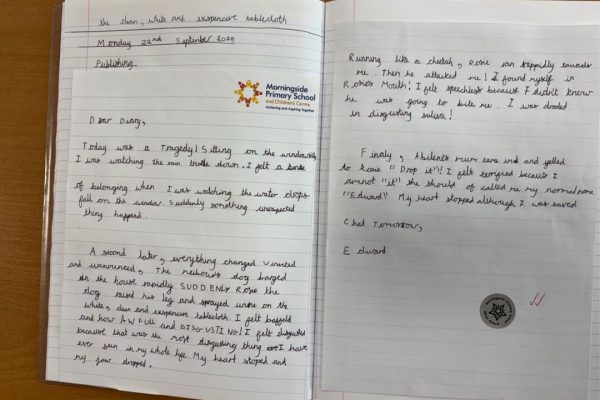 the clean, white and expensive tablecloth
Monday 22nd September 2025
Publishing
Morningside
Primary School
and Children's Centre
Achieving and Aspiring Together
Dear Diary,
Today was a Tragedy! Sitting on the windowsill
I was watching the rain trickle down. I felt a sense
of belonging when I was watching the water drops
fall on the window. Suddenly something unexpected
thing happend.
A second later, everything changed. Uninvited
and unanounced, The neibour's dog barged
in the house rapidly SUDDENLY Rosie the
dog raised his leg and sprayed urine on the
white, clean and exspencive tablecloth I felt baffeld
and how AWFULL and DISGUSTING! I felt disgusted
because that was the most disgusting thing I have
ever seen in my whole life. My heart stoped and
my jaw dropped.
Running like a cheetah, Rosie ran rappidly towards
me. Then he attacked me! I found myself in
Rosie's Mouth! I felt speechless because I didn't know
he was going to bite me. I was drooled
in disgusting saliva!
Finaly, mum came and and yelled
to Rosie "Drop it"! I felt terrified because I
am not "it" she should of called me my normal name
"Edward" My heart stopped although I was saved.
Chat Tomorrow,
Edward